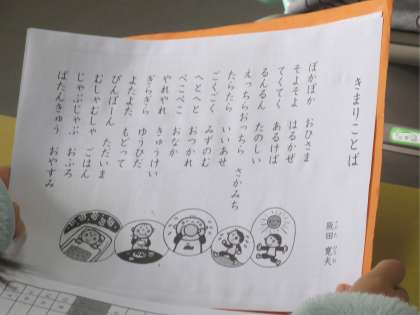 きまりことば
さかた ひろお
阪田 寛夫
ぽかぽか おひさま
そよそよ はるかぜ
てくてく あるけば
るんるん たのしい
えっちらおっちら さかみち
たらたら いいあせ
ごくごく みずのむ
へとへと おつかれ
ぺこぺこ おなか
やれやれ きゅうけい
ぎらぎら ゆうひだ
よたよた もどって
ぴんぽーん ただいま
むしゃむしゃ ごはん
じゃぶじゃぶ おふろ
ばたんきゅう おやすみ